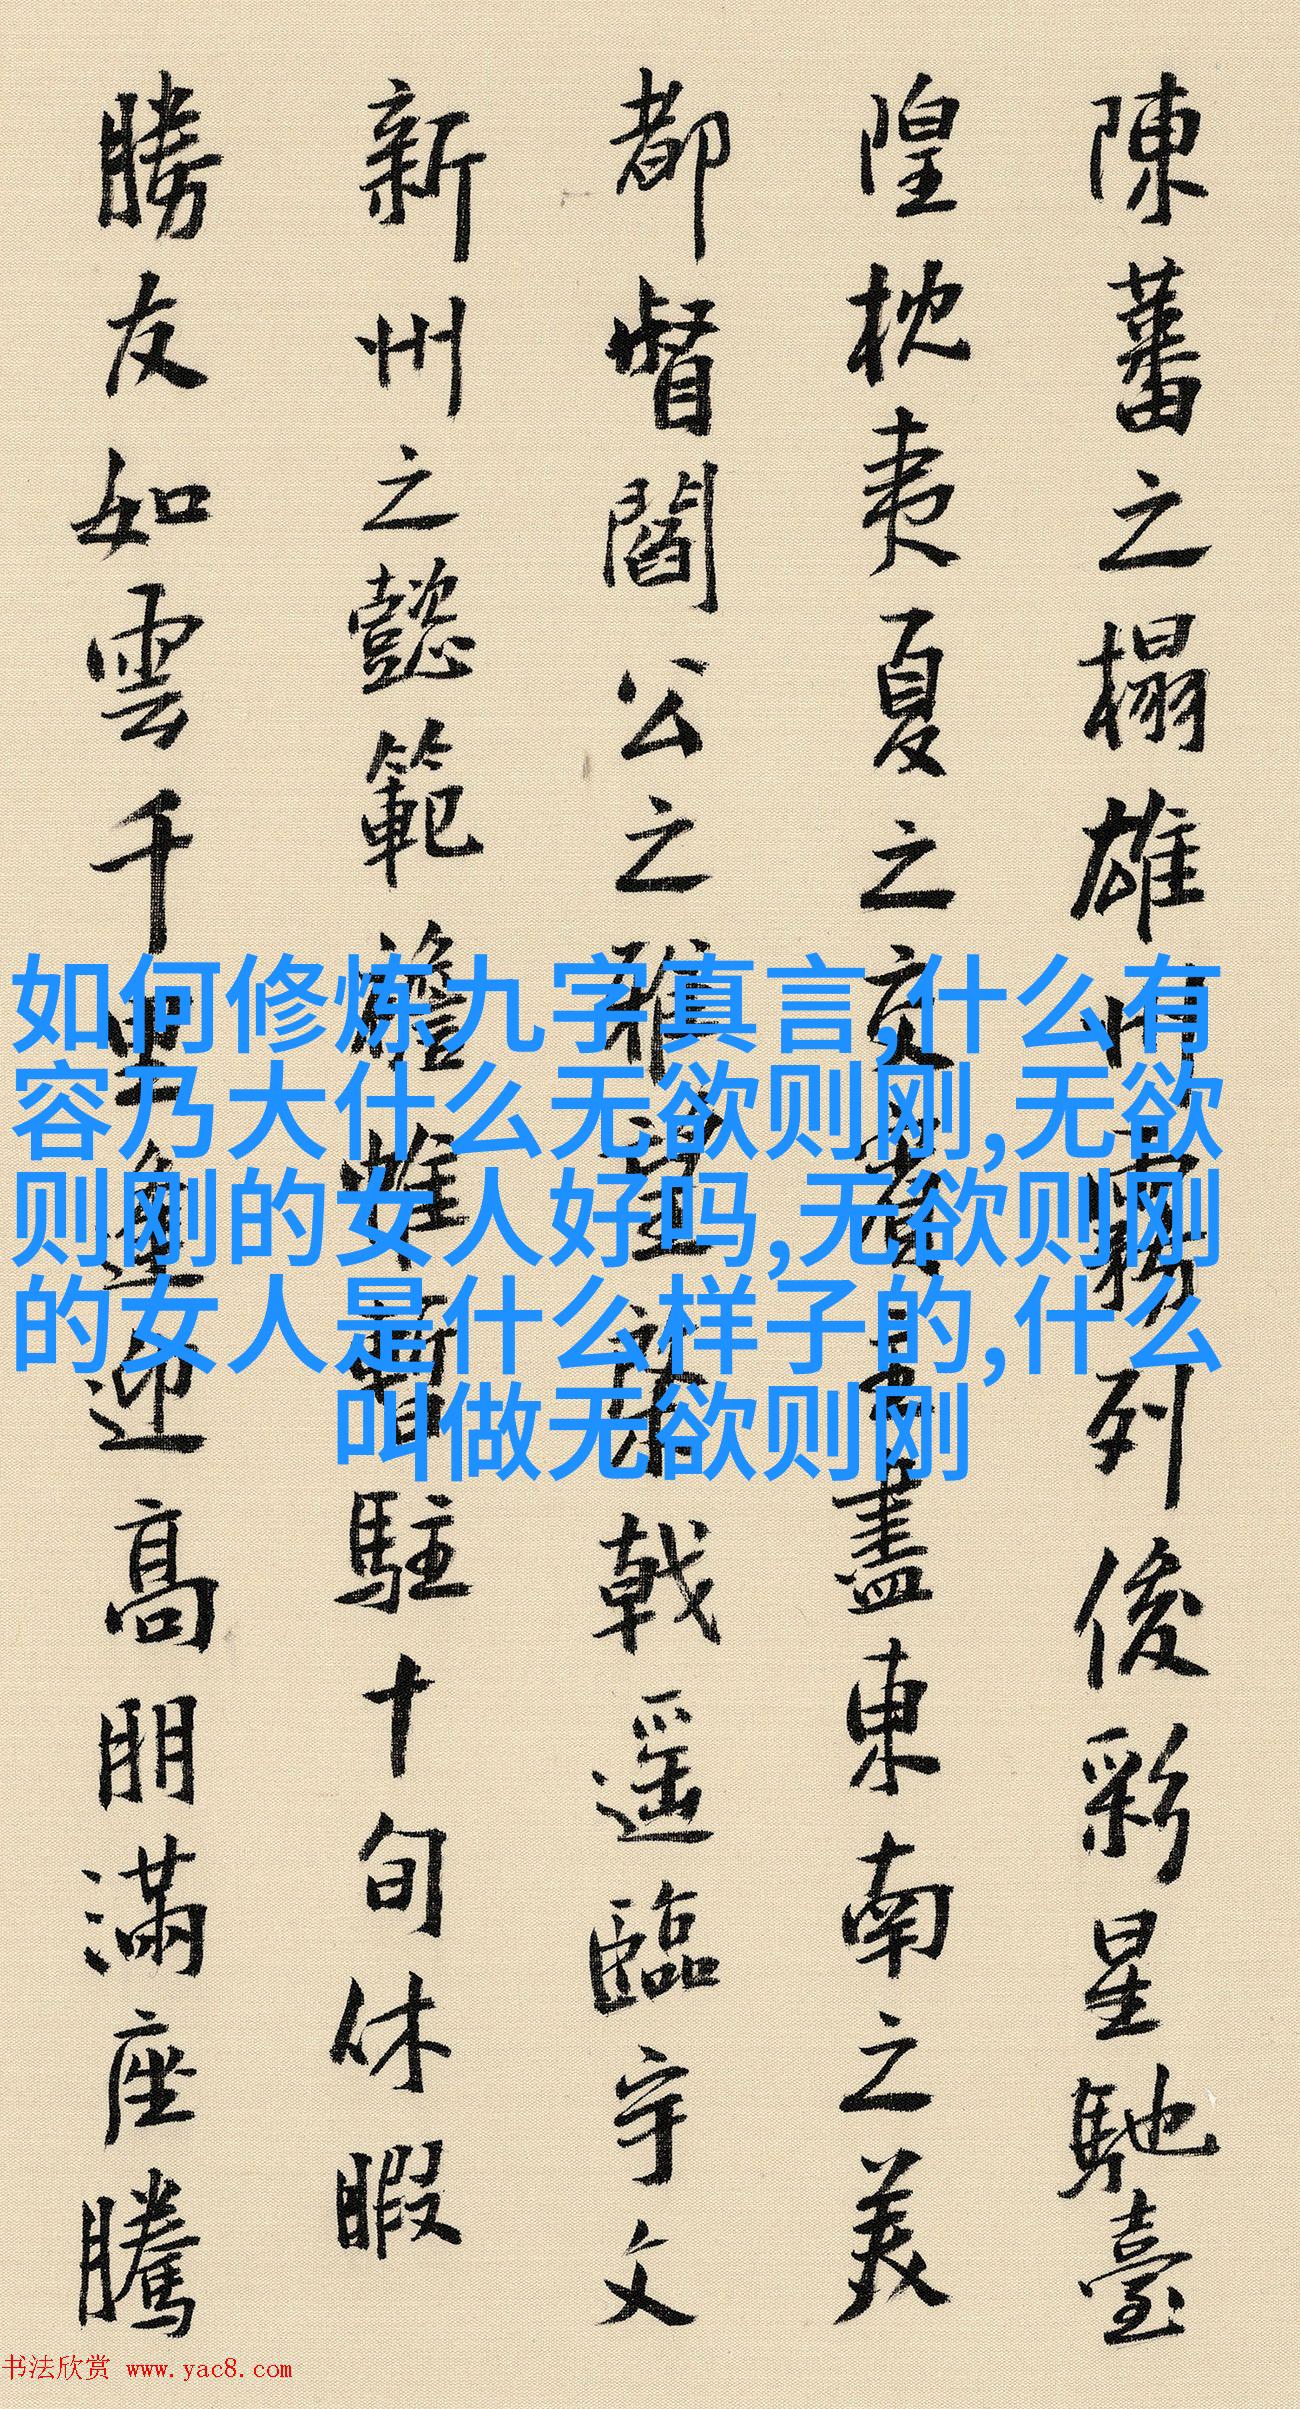 陳蕃之榻雄州霧列俊彩星馳臺
隍枕夷夏之交賓主盡東南之美
都督閻公之雅望棨戟遥臨宇文
新州之懿範襜帷暫駐十旬休暇
勝友如雲千里逢迎高朋滿座騰
如何修炼九字真言,什么有
容乃大什么无欲则刚,无欲
则刚的女人好吗,无欲则刚
的女人是什么样子的,什么
叫做无欲则刚
书法欣赏 www.yac8.com